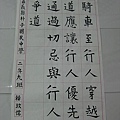 騎車至行人穿越
道應讓行人優先
通過切忌與行人
爭道
國民中學 二年九班